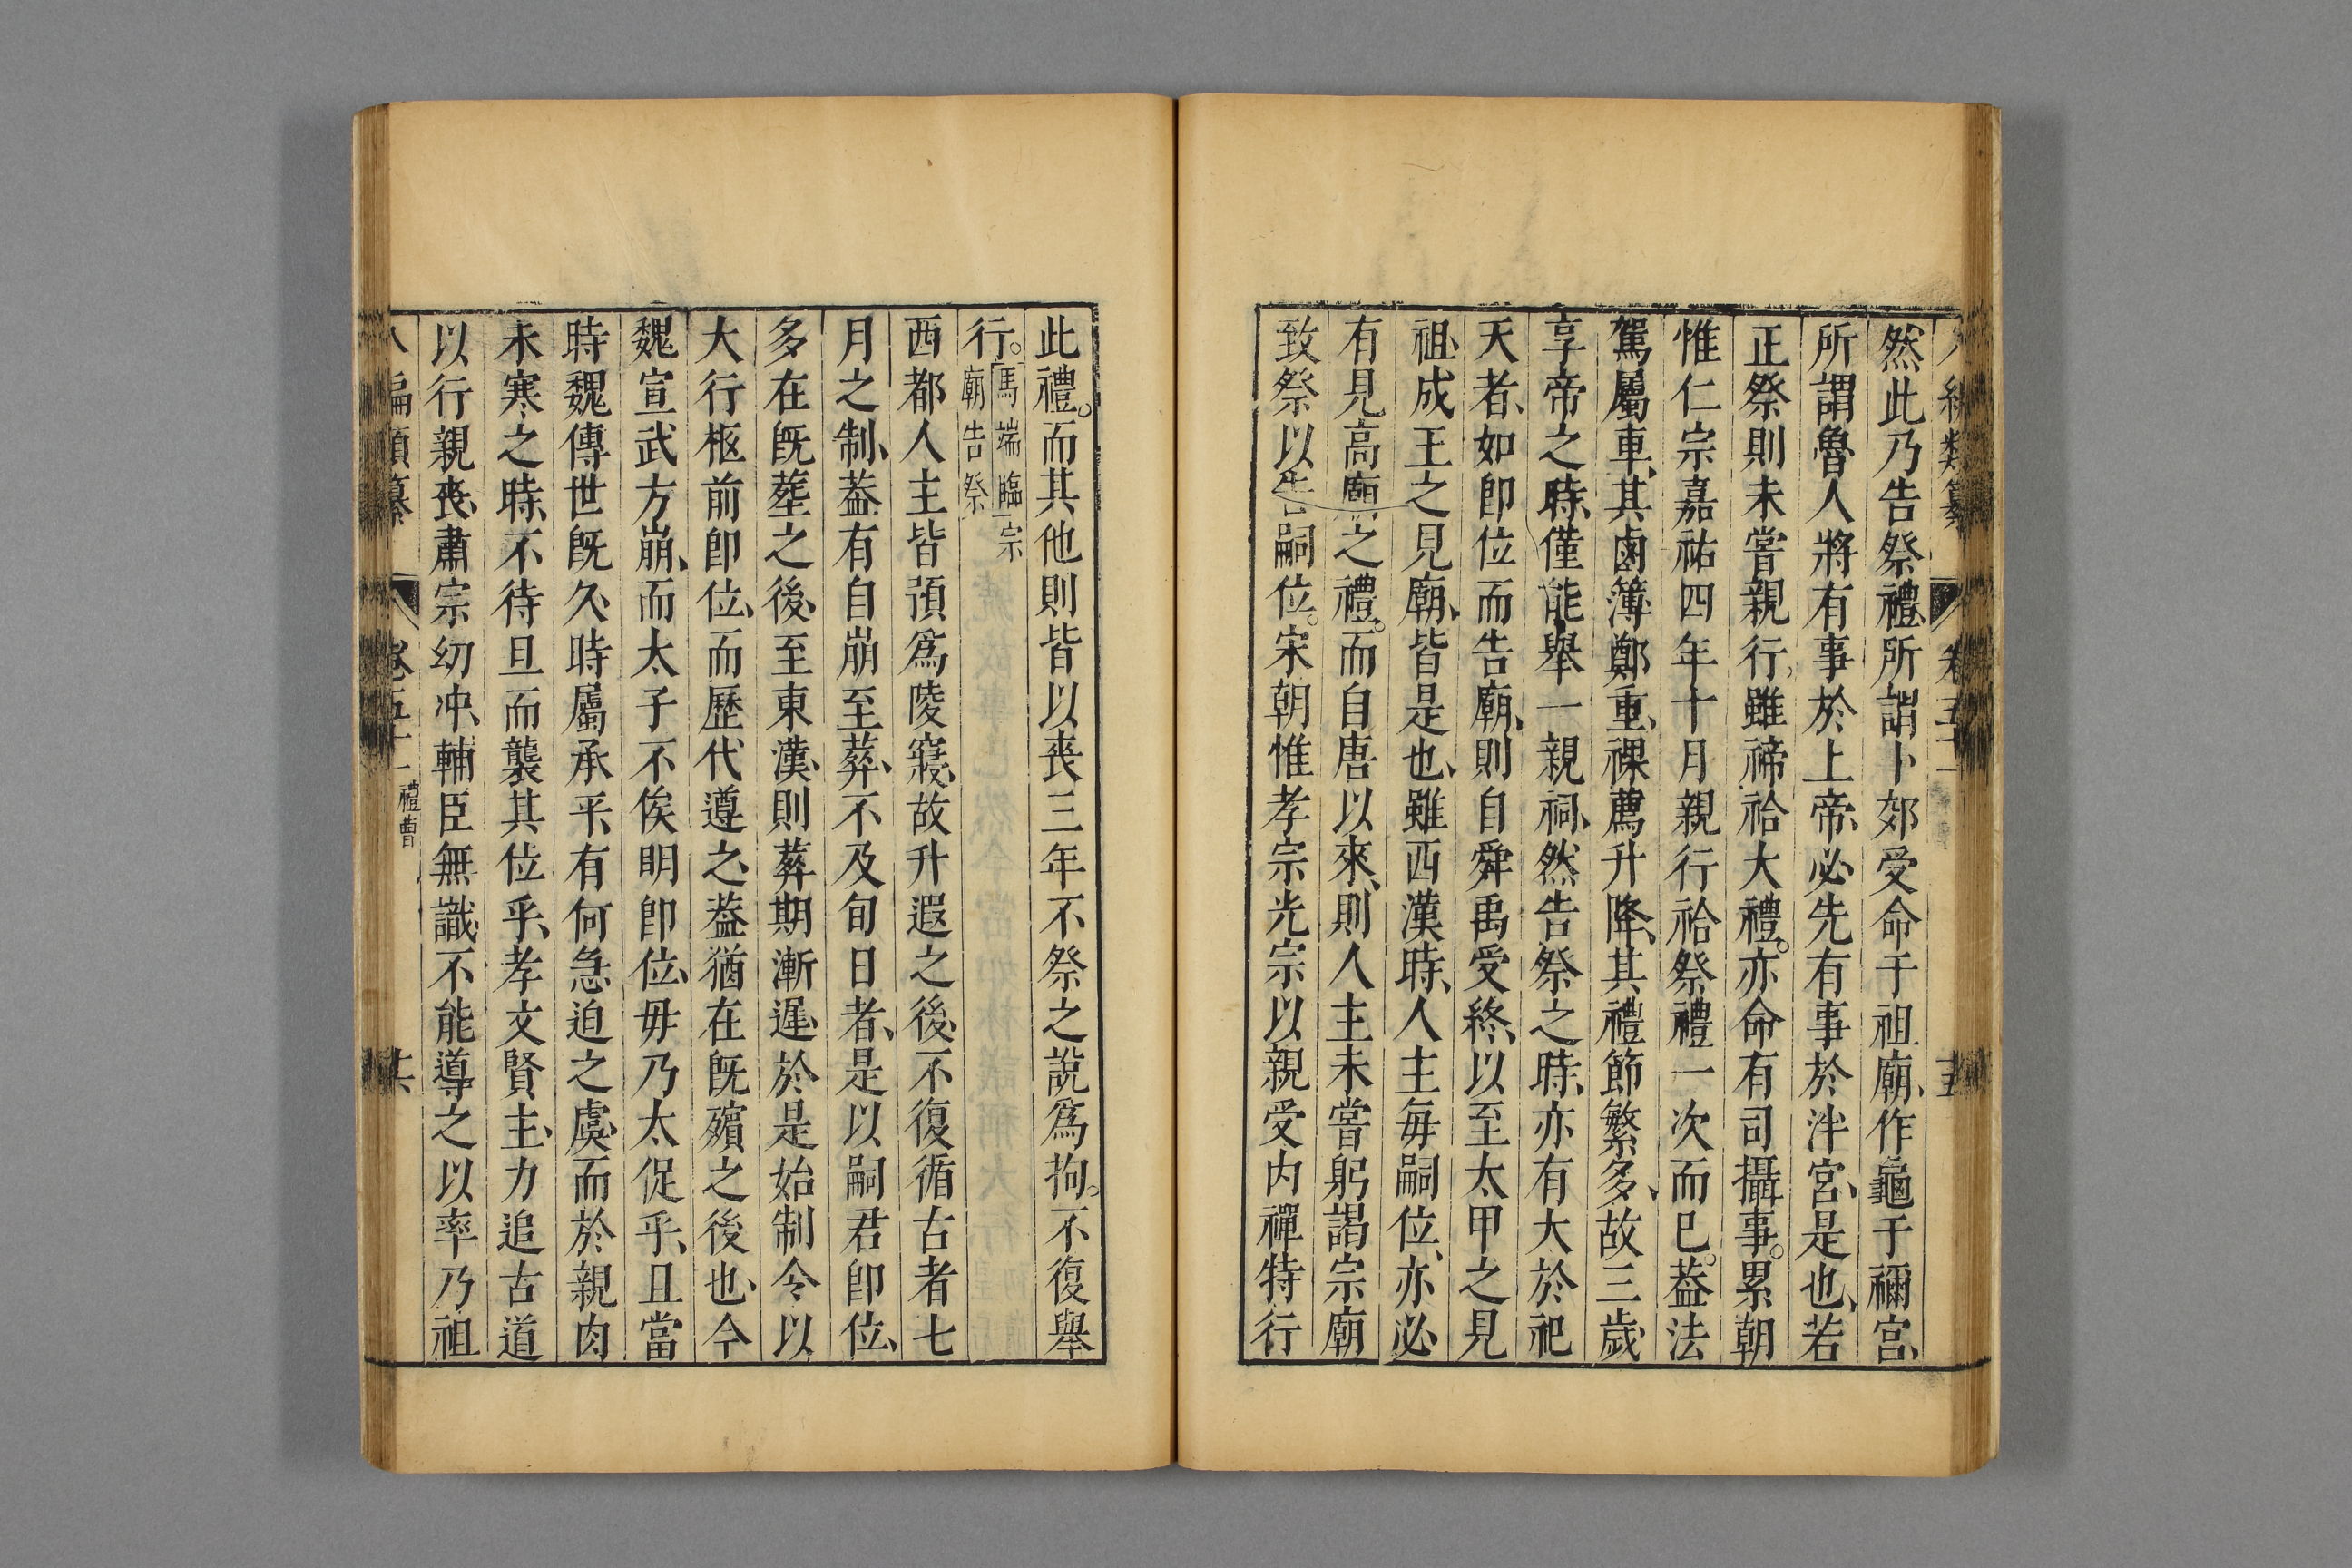 類纂
然此乃告祭禮所謂卜郊受命于祖廟作龜于禰宮
所謂魯人將有事於上帝必先有事於泮宮是也若
正祭則未嘗親行雖禘祫大禮亦命有司攝事累朝
惟仁宗嘉祐四年十月親行祫祭禮一次而已葢法
駕屬車其鹵簿鄭重祼薦升降其禮節繁多故三歲
享帝之時僅能舉一親祠然告祭之時亦有大於祀
天者如卽位而告廟則自舜禹受終以至太甲之見
祖成王之見廟皆是也雖西漢時人主每嗣位亦必
有見高廟之禮而自唐以來則人主未嘗躬謁宗廟
致祭以告嗣位宋朝惟孝宗光宗以親受内禪特行
此禮而其他則皆以喪三年不祭之說爲拘不復舉
行
馬端臨宗
廟告祭
西都人主皆預爲陵寢故升遐之後不復循古者七
月之制葢有自崩至葬不及旬日者是以嗣君卽位
多在旣塟之後至東漢則葬期漸遲於是始制令以
大行柩前卽位而歷代遵之葢猶在旣殯之後也今
魏宣武方崩而太子不俟明卽位毋乃太促乎且當
時魏傳世旣久時屬承平有何急迫之虞而於親肉
未寒之時不待旦而襲其位乎孝文賢主力追古道
以行親喪肅宗幼冲輔臣無識不能導之以率乃祖
禮曹